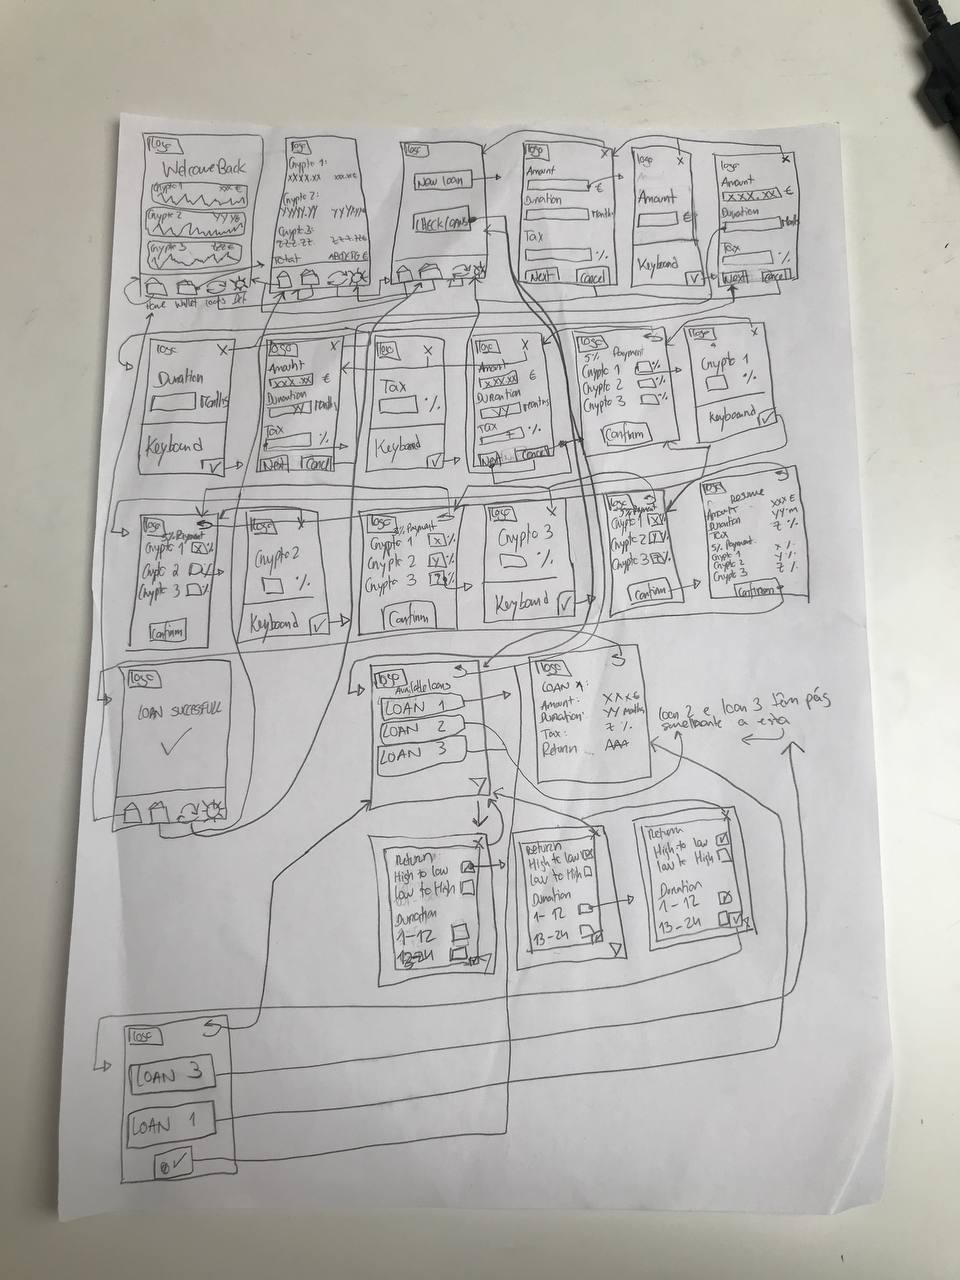 logo
Welcome Back
Crypto 1 xxx €
Crypto 2 YY Y€
Crypto 3 zzz €
Home Wallet Loans
logo
Crypto 1:
xxxx.xx xxx.xx€
Crypto 2:
YYYY.YY YYYYY€
Crypto 3:
zzz.zz zzz.zz€
Total
logo
New loan
CHECK LOANS
logo X
Amount
€
Duration
Months
Tax
%
Next Cancel
logo X
Amount
€
Keyboard
logo X
Amount
xxx.xx €
Duration
Months
Tax
%
Next Cancel
logo X
Duration
Months
Keyboard
logo X
Amount
xxx.xx €
Duration
YY Months
Tax
%
Next Cancel
logo X
Tax
%
Keyboard
logo X
Amount
x xxx.xx €
Duration
YY Months
Tax
z %
Next Cancel
logo
5% Payment
Crypto 1 %
Crypto 2 %
Crypto 3 %
Confirm
logo X
Crypto 1
%
Keyboard
logo
5% Payment
Crypto 1 X %
Crypto 2 %
Crypto 3 %
Confirm
logo X
Crypto 2
%
Keyboard
logo
5% Payment
Crypto 1 X %
Crypto 2 Y %
Crypto 3 %
Confirm
logo X
Crypto 3
%
Keyboard
logo
5% Payment
Crypto 1 X %
Crypto 2 Y %
Crypto 3 Z %
Confirm
logo
Resume
Amount xxx €
Duration YY m
Tax z %
5% Payment
Crypto 1 X %
Crypto 2 Y %
Crypto 3 Z %
Confirm
logo
LOAN SUCESSFULL
logo
Available loans
LOAN 1
LOAN 2
LOAN 3
logo
LOAN X:
Amount: XXX€
Duration: YY months
Tax: Z %
Return AAA
loan 2 e loan 3 têm pág
semelhante a esta
X
Return
High to low
low to High
Duration
1-12
13-24
X
Return
High to low
low to High
Duration
1-12
13-24
X
Return
High to low
low to High
Duration
1-12
13-24
logo
LOAN 3
LOAN 1